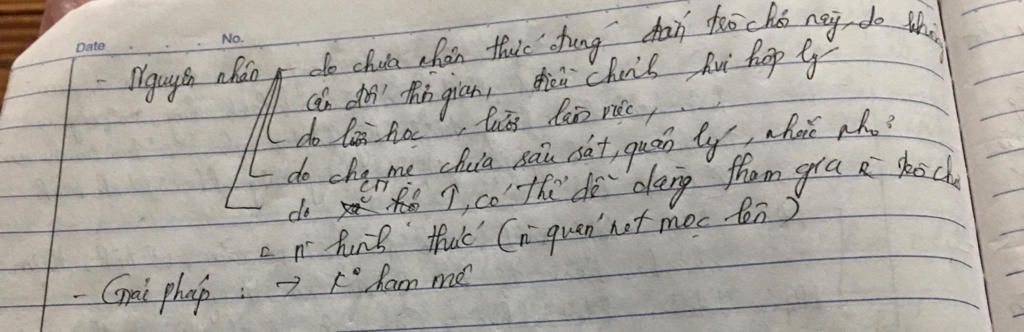 Date No.
- Nguyên nhân do chưa nhân thức đung đắn trò chó này, do không
cân đối thờ gian, điều chỉnh hợp lý
do lười học, lười làm việc, ...
do cha mẹ chưa sâu sát, quản lý, nhắc nhở
do ↑, có thể dễ dàng tham gia trò chơi
= n hình thức (n quan net mọc lên)
- Giải pháp : → k° ham mê